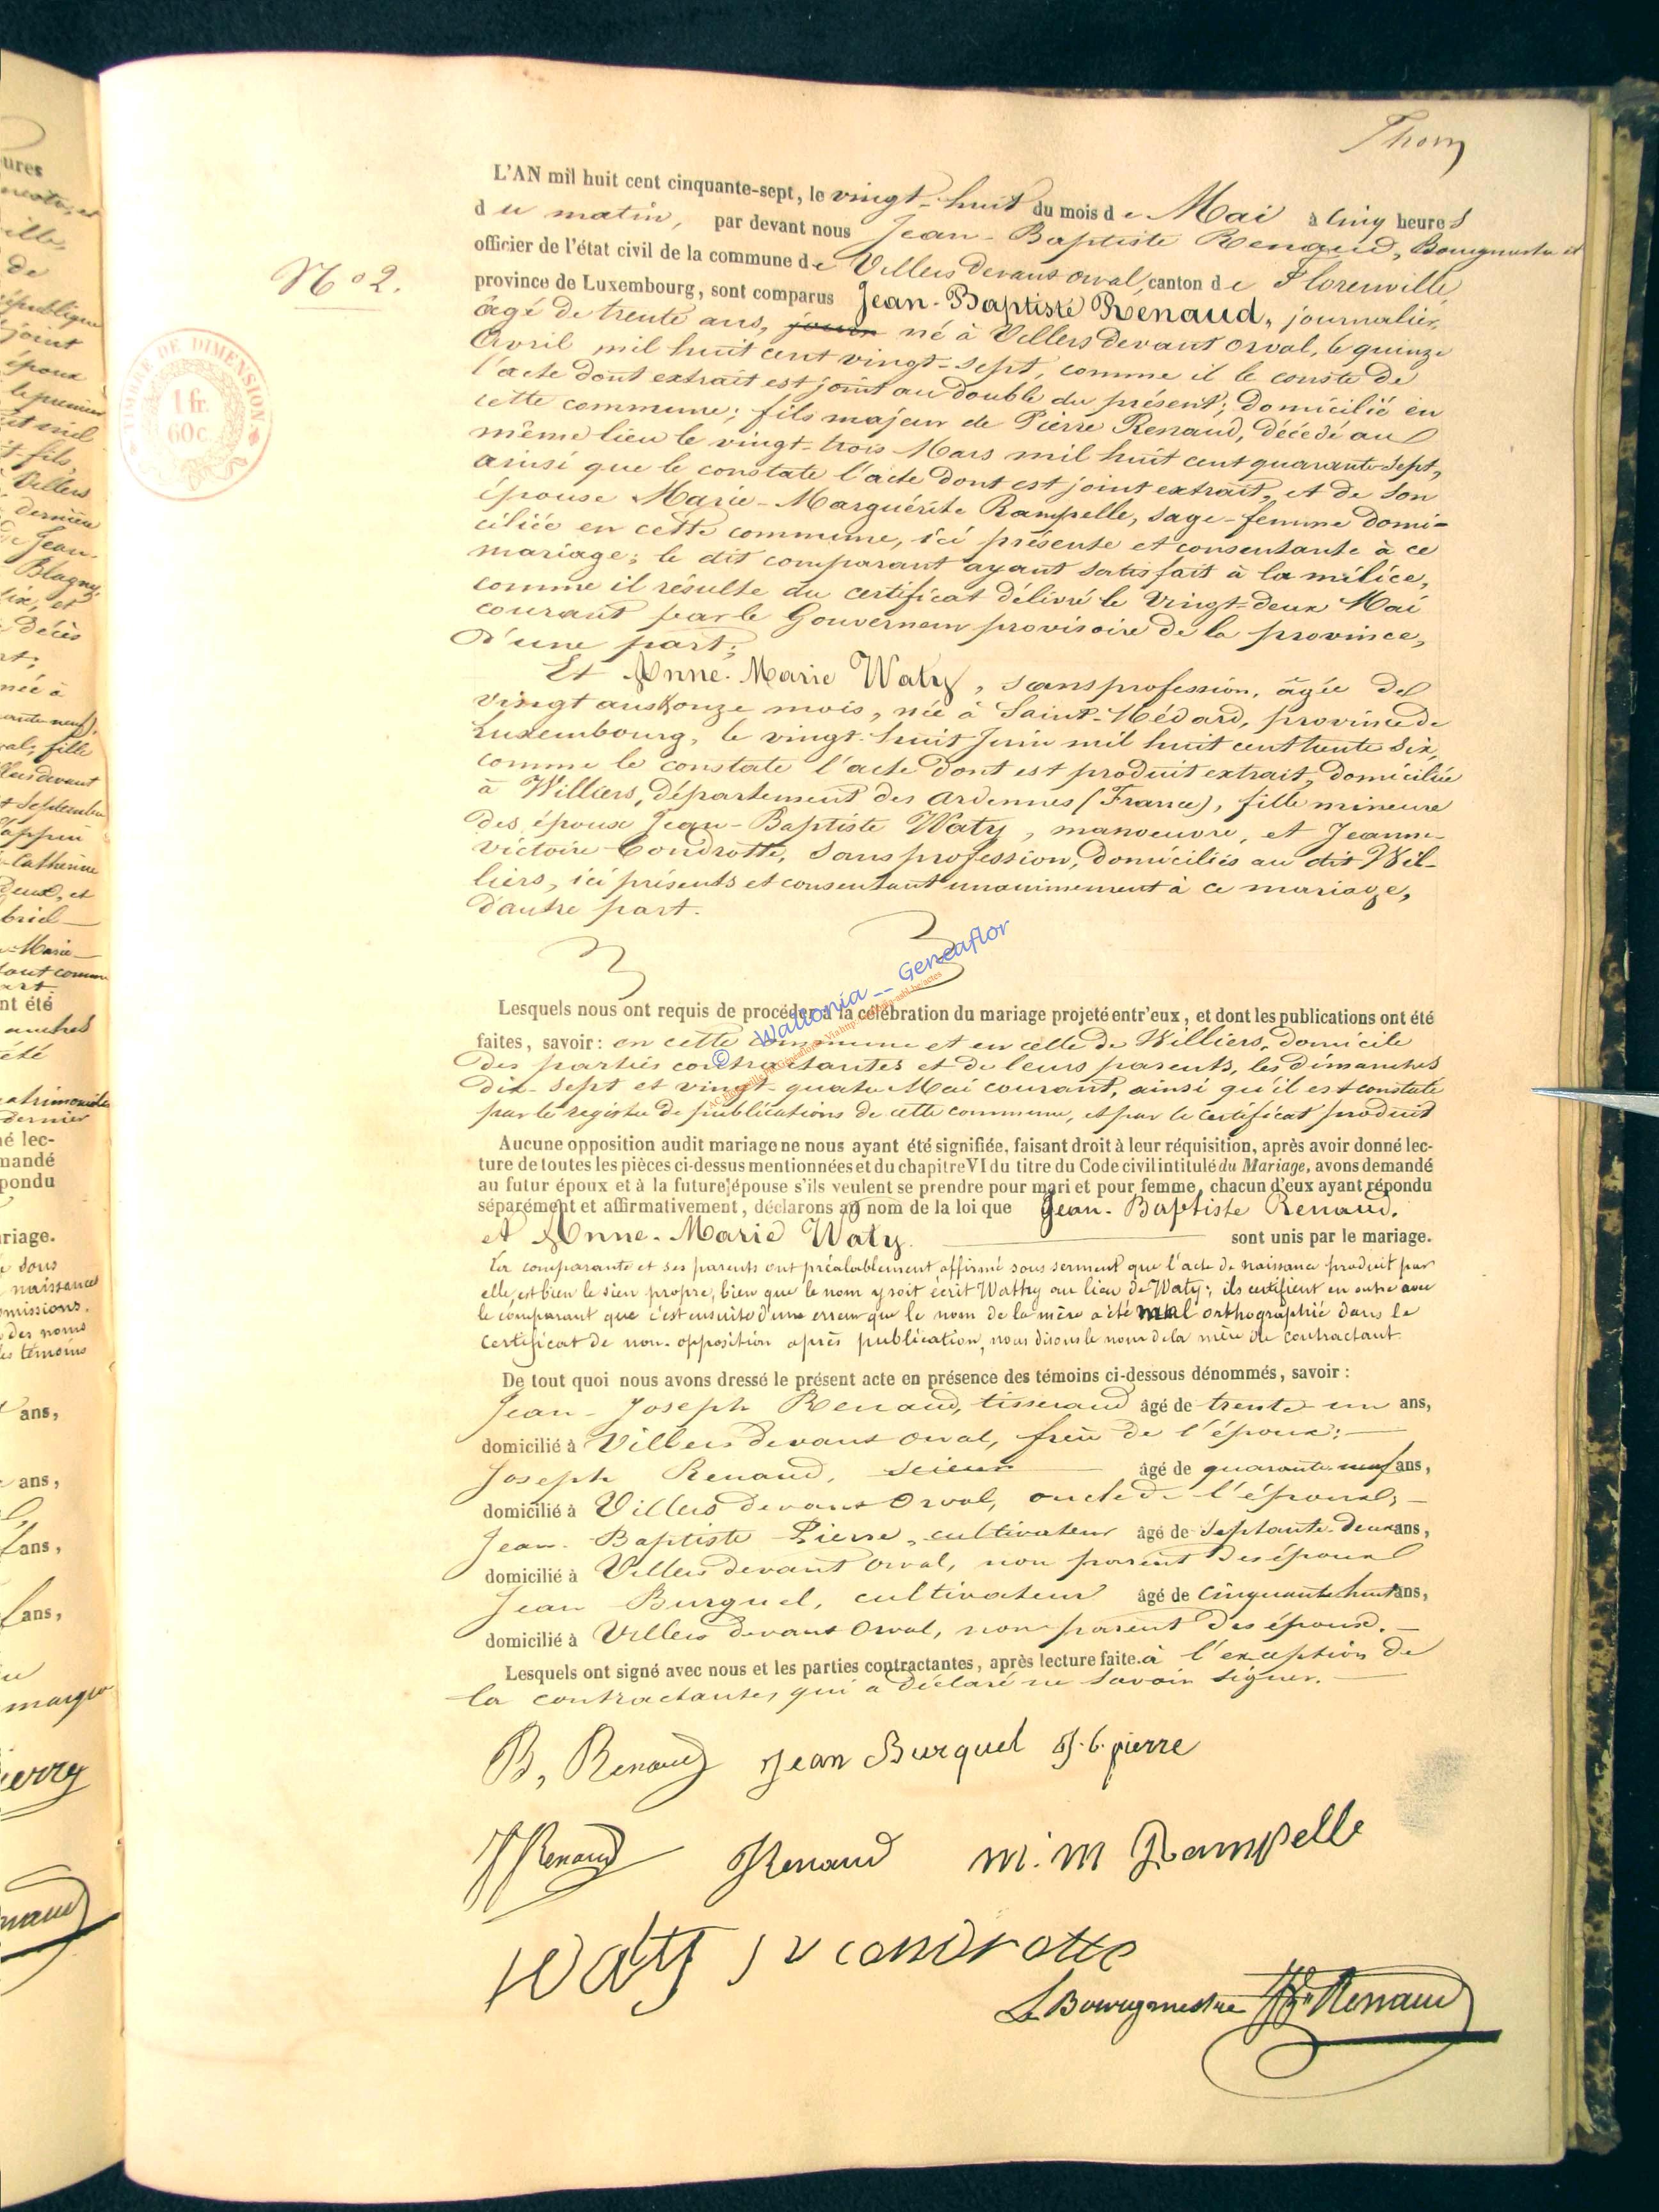 Thom
L'AN mil huit cent cinquante-sept, le vingt-huit du mois de Mai à cinq heures
du matin, par devant nous Jean-Baptiste Renaud, Bourgmestre et
officier de l'état civil de la commune de Villers devant orval, canton de Florenville
N° 2.
province de Luxembourg, sont comparus Jean-Baptiste Renaud, journalier,
âgé de trente ans, né à Villers devant orval, le quinze
Avril mil huit cent vingt-sept, comme il le conste de
l'acte dont extrait est joint au double du présent; domicilié en
cette commune; fils majeur de Pierre Renaud, décédé au
même lieu le vingt-trois Mars mil huit cent quarante-sept,
ainsi que le constate l'acte dont est joint extrait, et de son
épouse Marie-Marguérite Rampelle, sage-femme domi-
ciliée en cette commune, ici présente et consentante à ce
mariage; le dit comparant ayant satisfait à la milice,
comme il résulte du certificat délivré le vingt-deux Mai
courant par le Gouverneur provisoire de la province,
d'une part;
Et Anne-Marie Waty, sans profession, âgée de
vingt ans onze mois, née à Saint-Médard, province de
Luxembourg, le vingt-huit Juin mil huit cent trente six,
comme le constate l'acte dont est produit extrait, domiciliée
à Williers, département des Ardennes (France), fille mineure
des époux Jean-Baptiste Waty, manoeuvre, et Jeanne-
victoire Condrotte, sans profession, domiciliés au dit Wil-
liers, ici présents et consentant unanimement à ce mariage,
d'autre part.
TIMBRE DE DIMENSION
1 fr.
60 c.
© Wallonia -- Geneaflor
Lesquels nous ont requis de procéder à la célébration du mariage projeté entr'eux, et dont les publications ont été
faites, savoir: en cette commune et en celle de Williers, domicile
des parties contractantes et de leurs parents, les dimanches
dix-sept et vingt-quatre Mai courant, ainsi qu'il est constaté
par le registre de publications de cette commune, et par le certificat produit
Aucune opposition audit mariage ne nous ayant été signifiée, faisant droit à leur réquisition, après avoir donné lec-
ture de toutes les pièces ci-dessus mentionnées et du chapitre VI du titre du Code civil intitulé du Mariage, avons demandé
au futur époux et à la future épouse s'ils veulent se prendre pour mari et pour femme, chacun d'eux ayant répondu
séparément et affirmativement, déclarons au nom de la loi que Jean-Baptiste Renaud,
et Anne-Marie Waty. sont unis par le mariage.
La comparante et ses parents ont préalablement affirmé sous serment que l'acte de naissance produit par
elle, est bien le sien propre, bien que le nom y soit écrit Watthy au lieu de Waty; ils certifient en outre avec
le comparant que c'est ensuite d'une erreur que le nom de la mère a été mal orthographié dans le
certificat de non-opposition après publication, nous disons le nom de la mère du contractant.
De tout quoi nous avons dressé le présent acte en présence des témoins ci-dessous dénommés, savoir :
Jean-Joseph Renaud, tisserand âgé de trente-un ans,
domicilié à Villers devant orval, frère de l'époux;
Joseph Renaud, scieur âgé de quarante-neuf ans,
domicilié à Villers devant Orval, oncle de l'époux;
Jean-Baptiste Pierre, cultivateur âgé de septante-deux ans,
domicilié à Villers devant orval, non parent des époux
Jean Burquel, cultivateur âgé de cinquante huit ans,
domicilié à Villers devant Orval, non parent des époux.
Lesquels ont signé avec nous et les parties contractantes, après lecture faite. à l'exception de
la contractante, qui a déclaré ne savoir signer.
B, Renaud Jean Burquel J. b. pierre
JJRenaud JRenaud m. m Rampelle
Waty j v condrotte
Le Bourgmestre JBte Renaud